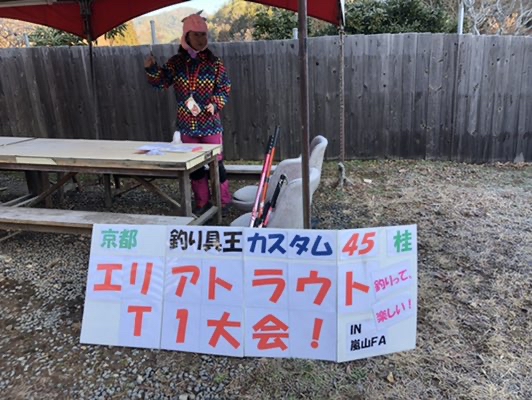 京都 釣り具王 カスタム 45 桂
エリアトラウト
T1大会!
釣りって、
楽しい!
IN
嵐山FA